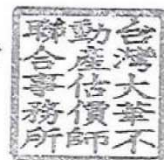 台灣大華不
動產估價師
聯合事務所